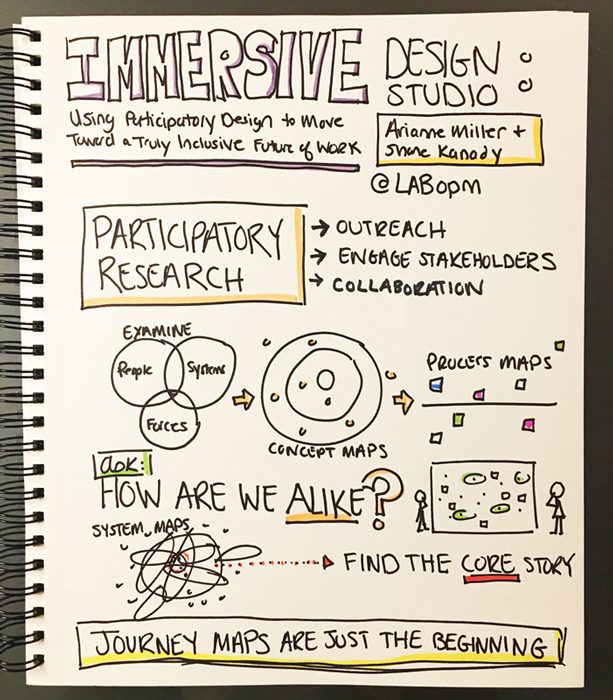 IMMERSIVE DESIGN STUDIO:
Using Participatory Design to Move
Toward a Truly Inclusive Future of Work
Arianne Miller +
Shane Kanady
@LABopm
PARTICIPATORY
RESEARCH
→ OUTREACH
→ ENGAGE STAKEHOLDERS
→ COLLABORATION
EXAMINE
People
Systems
Forces
CONCEPT MAPS
PROCESS MAPS
ask:
HOW ARE WE ALIKE?
SYSTEM MAPS
FIND THE CORE STORY
JOURNEY MAPS ARE JUST THE BEGINNING